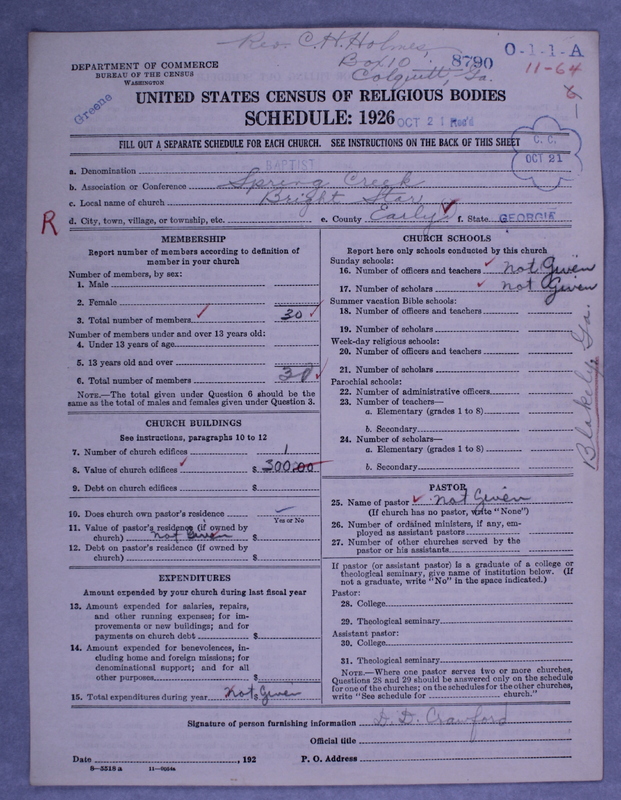 Rev. C. H. Holmes,
Box 10
8790
O-1-1-A
Colquitt, Ga.
11-64
DEPARTMENT OF COMMERCE
BUREAU OF THE CENSUS
WASHINGTON
Greene
UNITED STATES CENSUS OF RELIGIOUS BODIES
SCHEDULE: 1926
OCT 21 Rec'd
FILL OUT A SEPARATE SCHEDULE FOR EACH CHURCH. SEE INSTRUCTIONS ON THE BACK OF THIS SHEET
C. C.
OCT 21
a. Denomination BAPTIST
b. Association or Conference Spring Creek
c. Local name of church Bright Star
d. City, town, village, or township, etc. e. County Early f. State GEORGIA
R
MEMBERSHIP
Report number of members according to definition of
member in your church
Number of members, by sex:
1. Male
2. Female
3. Total number of members 30
Number of members under and over 13 years old:
4. Under 13 years of age
5. 13 years old and over
6. Total number of members 30
NOTE.—The total given under Question 6 should be the
same as the total of males and females given under Question 3.
CHURCH BUILDINGS
See instructions, paragraphs 10 to 12
7. Number of church edifices 1
8. Value of church edifices $ 300.00
9. Debt on church edifices $
10. Does church own pastor's residence
Yes or No
11. Value of pastor's residence (if owned by
church) Not Given $
12. Debt on pastor's residence (if owned by
church) $
EXPENDITURES
Amount expended by your church during last fiscal year
13. Amount expended for salaries, repairs,
and other running expenses; for im-
provements or new buildings; and for
payments on church debt $
14. Amount expended for benevolences, in-
cluding home and foreign missions; for
denominational support; and for all
other purposes $
15. Total expenditures during year Not Given
CHURCH SCHOOLS
Report here only schools conducted by this church
Sunday schools:
16. Number of officers and teachers Not Given
17. Number of scholars Not Given
Summer vacation Bible schools:
18. Number of officers and teachers
19. Number of scholars
Week-day religious schools:
20. Number of officers and teachers
21. Number of scholars
Parochial schools:
22. Number of administrative officers
23. Number of teachers—
a. Elementary (grades 1 to 8)
b. Secondary
24. Number of scholars—
a. Elementary (grades 1 to 8)
b. Secondary
Blakely Ga.
PASTOR
25. Name of pastor Not Given
(If church has no pastor, write "None")
26. Number of ordained ministers, if any, em-
ployed as assistant pastors
27. Number of other churches served by the
pastor or his assistants
If pastor (or assistant pastor) is a graduate of a college or
theological seminary, give name of institution below. (If
not a graduate, write "No" in the space indicated.)
Pastor:
28. College
29. Theological seminary
Assistant pastor:
30. College
31. Theological seminary
NOTE.—Where one pastor serves two or more churches,
Questions 28 and 29 should be answered only on the schedule
for one of the churches; on the schedules for the other churches,
write "See schedule for church."
Signature of person furnishing information D. D. Crawford
Official title
Date , 192 P. O. Address
8-5518 a